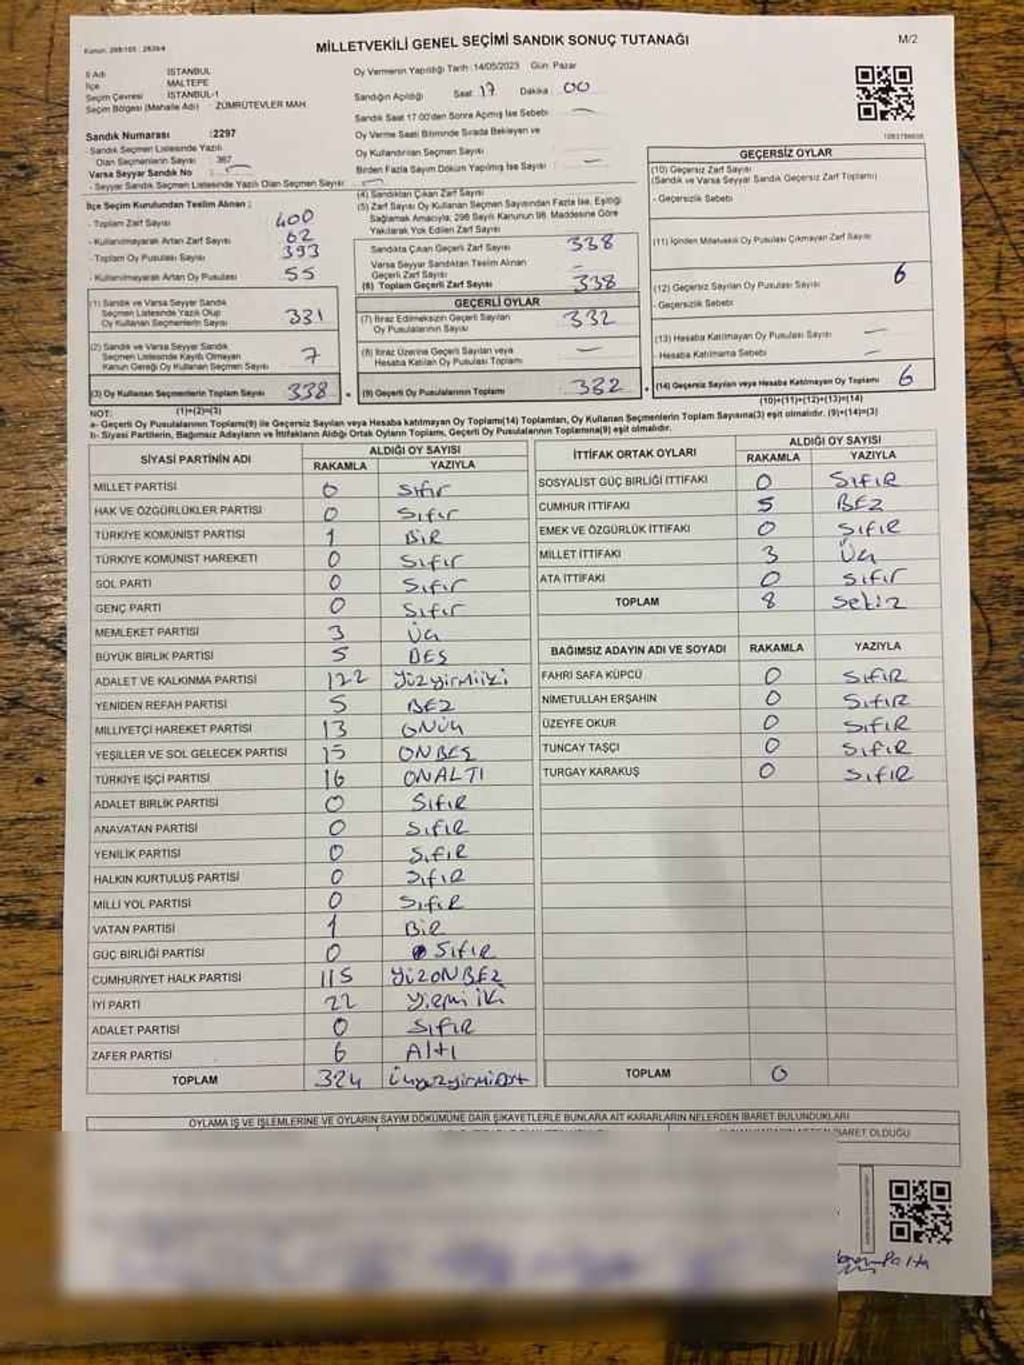 Kanun: 298/105 : 2839/4
MİLLETVEKİLİ GENEL SEÇİMİ SANDIK SONUÇ TUTANAĞI
M/2
İl Adı İSTANBUL
İlçe MALTEPE
Seçim Çevresi İSTANBUL-1
Seçim Bölgesi (Mahalle Adı) : ZÜMRÜTEVLER MAH.
Sandık Numarası :2297
- Sandık Seçmen Listesinde Yazılı
Olan Seçmenlerin Sayısı : 367
Varsa Seyyar Sandık No
- Seyyar Sandık Seçmen Listesinde Yazılı Olan Seçmen Sayısı :
Oy Vermenin Yapıldığı Tarih :14/05/2023 Gün: Pazar
Sandığın Açıldığı Saat : 17 Dakika : 00
Sandık Saat 17.00'den Sonra Açılmış İse Sebebi : —
Oy Verme Saati Bitiminde Sırada Bekleyen ve
Oy Kullandırılan Seçmen Sayısı :
Birden Fazla Sayım Döküm Yapılmış İse Sayısı : —
İlçe Seçim Kurulundan Teslim Alınan :
- Toplam Zarf Sayısı 400
- Kullanılmayarak Artan Zarf Sayısı 62
- Toplam Oy Pusulası Sayısı 393
- Kullanılmayarak Artan Oy Pusulası 55
(1) Sandık ve Varsa Seyyar Sandık
Seçmen Listesinde Yazılı Olup
Oy Kullanan Seçmenlerin Sayısı 331
(2) Sandık ve Varsa Seyyar Sandık
Seçmen Listesinde Kayıtlı Olmayan
Kanun Gereği Oy Kullanan Seçmen Sayısı 7
(3) Oy Kullanan Seçmenlerin Toplam Sayısı 338
(1)+(2)=(3)
(4) Sandıktan Çıkan Zarf Sayısı
(5) Zarf Sayısı Oy Kullanan Seçmen Sayısından Fazla İse, Eşitliği
Sağlamak Amacıyla; 298 Sayılı Kanunun 98. Maddesine Göre
Yakılarak Yok Edilen Zarf Sayısı
Sandıkta Çıkan Geçerli Zarf Sayısı 338
Varsa Seyyar Sandıktan Teslim Alınan
Geçerli Zarf Sayısı —
(6) Toplam Geçerli Zarf Sayısı 338
GEÇERLİ OYLAR
(7) İtiraz Edilmeksizin Geçerli Sayılan
Oy Pusulalarının Sayısı 332
(8) İtiraz Üzerine Geçerli Sayılan veya
Hesaba Katılan Oy Pusulası Toplamı —
(9) Geçerli Oy Pusulalarının Toplamı 332
GEÇERSİZ OYLAR
(10) Geçersiz Zarf Sayısı
(Sandık ve Varsa Seyyar Sandık Geçersiz Zarf Toplamı)
- Geçersizlik Sebebi
(11) İçinden Milletvekili Oy Pusulası Çıkmayan Zarf Sayısı
(12) Geçersiz Sayılan Oy Pusulası Sayısı 6
- Geçersizlik Sebebi
(13) Hesaba Katılmayan Oy Pusulası Sayısı —
- Hesaba Katılmama Sebebi —
(14) Geçersiz Sayılan veya Hesaba Katılmayan Oy Toplamı 6
(10)+(11)+(12)+(13)=(14)
NOT:
a- Geçerli Oy Pusulaları Toplamı(9) ile Geçersiz Sayılan veya Hesaba katılmayan Oy Toplamı(14) Toplamları, Oy Kullanan Seçmenlerin Toplam Sayısına(3) eşit olmalıdır. (9)+(14)=(3)
b- Siyasi Partilerin, Bağımsız Adayların ve İttifakların Aldığı Ortak Oyların Toplamı, Geçerli Oy Pusulalarının Toplamına(9) eşit olmalıdır.
SİYASİ PARTİNİN ADI ALDIĞI OY SAYISI
RAKAMLA YAZIYLA
MİLLET PARTİSİ 0 Sıfır
HAK VE ÖZGÜRLÜKLER PARTİSİ 0 Sıfır
TÜRKİYE KOMÜNİST PARTİSİ 1 BİR
TÜRKİYE KOMÜNİST HAREKETİ 0 Sıfır
SOL PARTİ 0 Sıfır
GENÇ PARTİ 0 Sıfır
MEMLEKET PARTİSİ 3 Üç
BÜYÜK BİRLİK PARTİSİ 5 BEŞ
ADALET VE KALKINMA PARTİSİ 122 Yüzyirmiiki
YENİDEN REFAH PARTİSİ 5 BEŞ
MİLLİYETÇİ HAREKET PARTİSİ 13 ONÜÇ
YEŞİLLER VE SOL GELECEK PARTİSİ 15 ONBEŞ
TÜRKİYE İŞÇİ PARTİSİ 16 ONALTI
ADALET BİRLİK PARTİSİ 0 SIFIR
ANAVATAN PARTİSİ 0 SIFIR
YENİLİK PARTİSİ 0 SIFIR
HALKIN KURTULUŞ PARTİSİ 0 SIFIR
MİLLİ YOL PARTİSİ 0 SIFIR
VATAN PARTİSİ 1 BİR
GÜÇ BİRLİĞİ PARTİSİ 0 SIFIR
CUMHURİYET HALK PARTİSİ 115 YÜZONBEŞ
İYİ PARTİ 22 Yirmi iki
ADALET PARTİSİ 0 SIFIR
ZAFER PARTİSİ 6 Altı
TOPLAM 324 üçyüzyirmidört
İTTİFAK ORTAK OYLARI ALDIĞI OY SAYISI
RAKAMLA YAZIYLA
SOSYALİST GÜÇ BİRLİĞİ İTTİFAKI 0 SIFIR
CUMHUR İTTİFAKI 5 BEŞ
EMEK VE ÖZGÜRLÜK İTTİFAKI 0 SIFIR
MİLLET İTTİFAKI 3 Üç
ATA İTTİFAKI 0 Sıfır
TOPLAM 8 Sekiz
BAĞIMSIZ ADAYIN ADI VE SOYADI RAKAMLA YAZIYLA
FAHRİ SAFA KÜPCÜ 0 SIFIR
NİMETULLAH ERŞAHİN 0 SIFIR
ÜZEYFE OKUR 0 SIFIR
TUNCAY TAŞÇI 0 SIFIR
TURGAY KARAKUŞ 0 SIFIR
TOPLAM 0
OYLAMA İŞ VE İŞLEMLERİNE VE OYLARIN SAYIM DÖKÜMÜNE DAİR ŞİKAYETLERLE BUNLARA AİT KARARLARIN NELERDEN İBARET BULUNDUKLARI
İBARET OLDUĞU